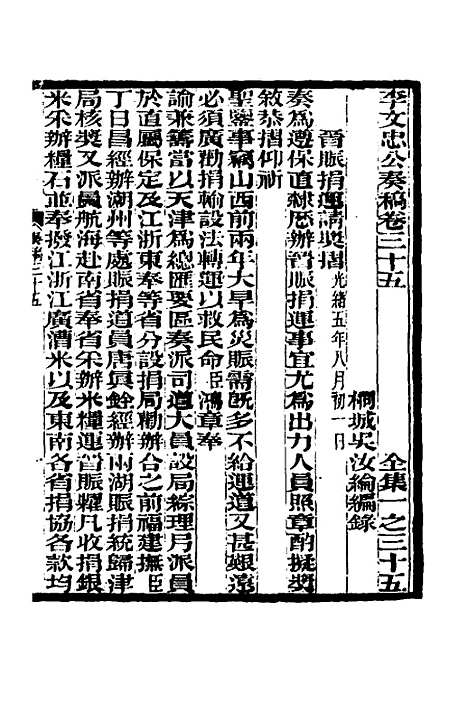 李文忠公奏稿卷三十五　全集一之三十五
桐城吳汝綸編錄
晉賑捐運請獎摺 光緒五年八月初一日
奏爲遵保直隸歷辦晉賑捐運事宜尤爲出力人員照章酌擬獎
敘恭摺仰祈
聖鑒事竊山西前兩年大旱爲災賑需旣多不給運道又甚艱遠
必須廣勸捐輸設法轉運以救民命臣鴻章奉
諭兼籌當以天津爲總匯要區奏派司道大員設局綜理另派員
於直屬保定及江浙東奉等省分設捐局勸辦合之前福建撫臣
丁日昌經辦潮州等處賑捐道員唐員銓經辦兩湖賑捐統歸津
局核獎又派員航海赴南省奉省采辦米糧運晉賑糶凡收捐銀
米采辦糧石並奉撥江浙江廣漕米以及東南各省捐協各款均
奏稿三十五